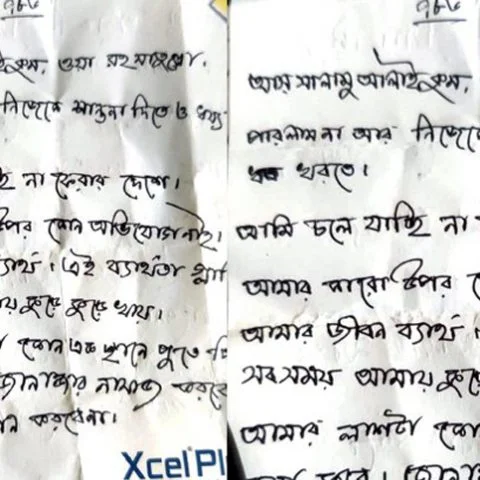 ৭৮৬
ইকুম, ওয়া রহমাতুল্লা.
নিজেকে শান্তনা দিতে ও
না ফেরার দেশে।
উপর কোন অভিযোগ নাই।
ব্যার্থ। এই ব্যার্থতা গ্লা
য় কুড়ে কুড়ে খায়।
কোন এক স্থানে পুতে
জানাজার নামাজ করবে
করবেনা।
Xcel Pl
৭৮৬
আস সালামু আলাইকুম,
পারলাম না আর নিজেকে
ধরতে।
আমি চলে যাচ্ছি না
আমার কারো উপর
আমার জীবন ব্যার্থ।
সব সময় আমায় কুড়ে
আমার লাশটা কো